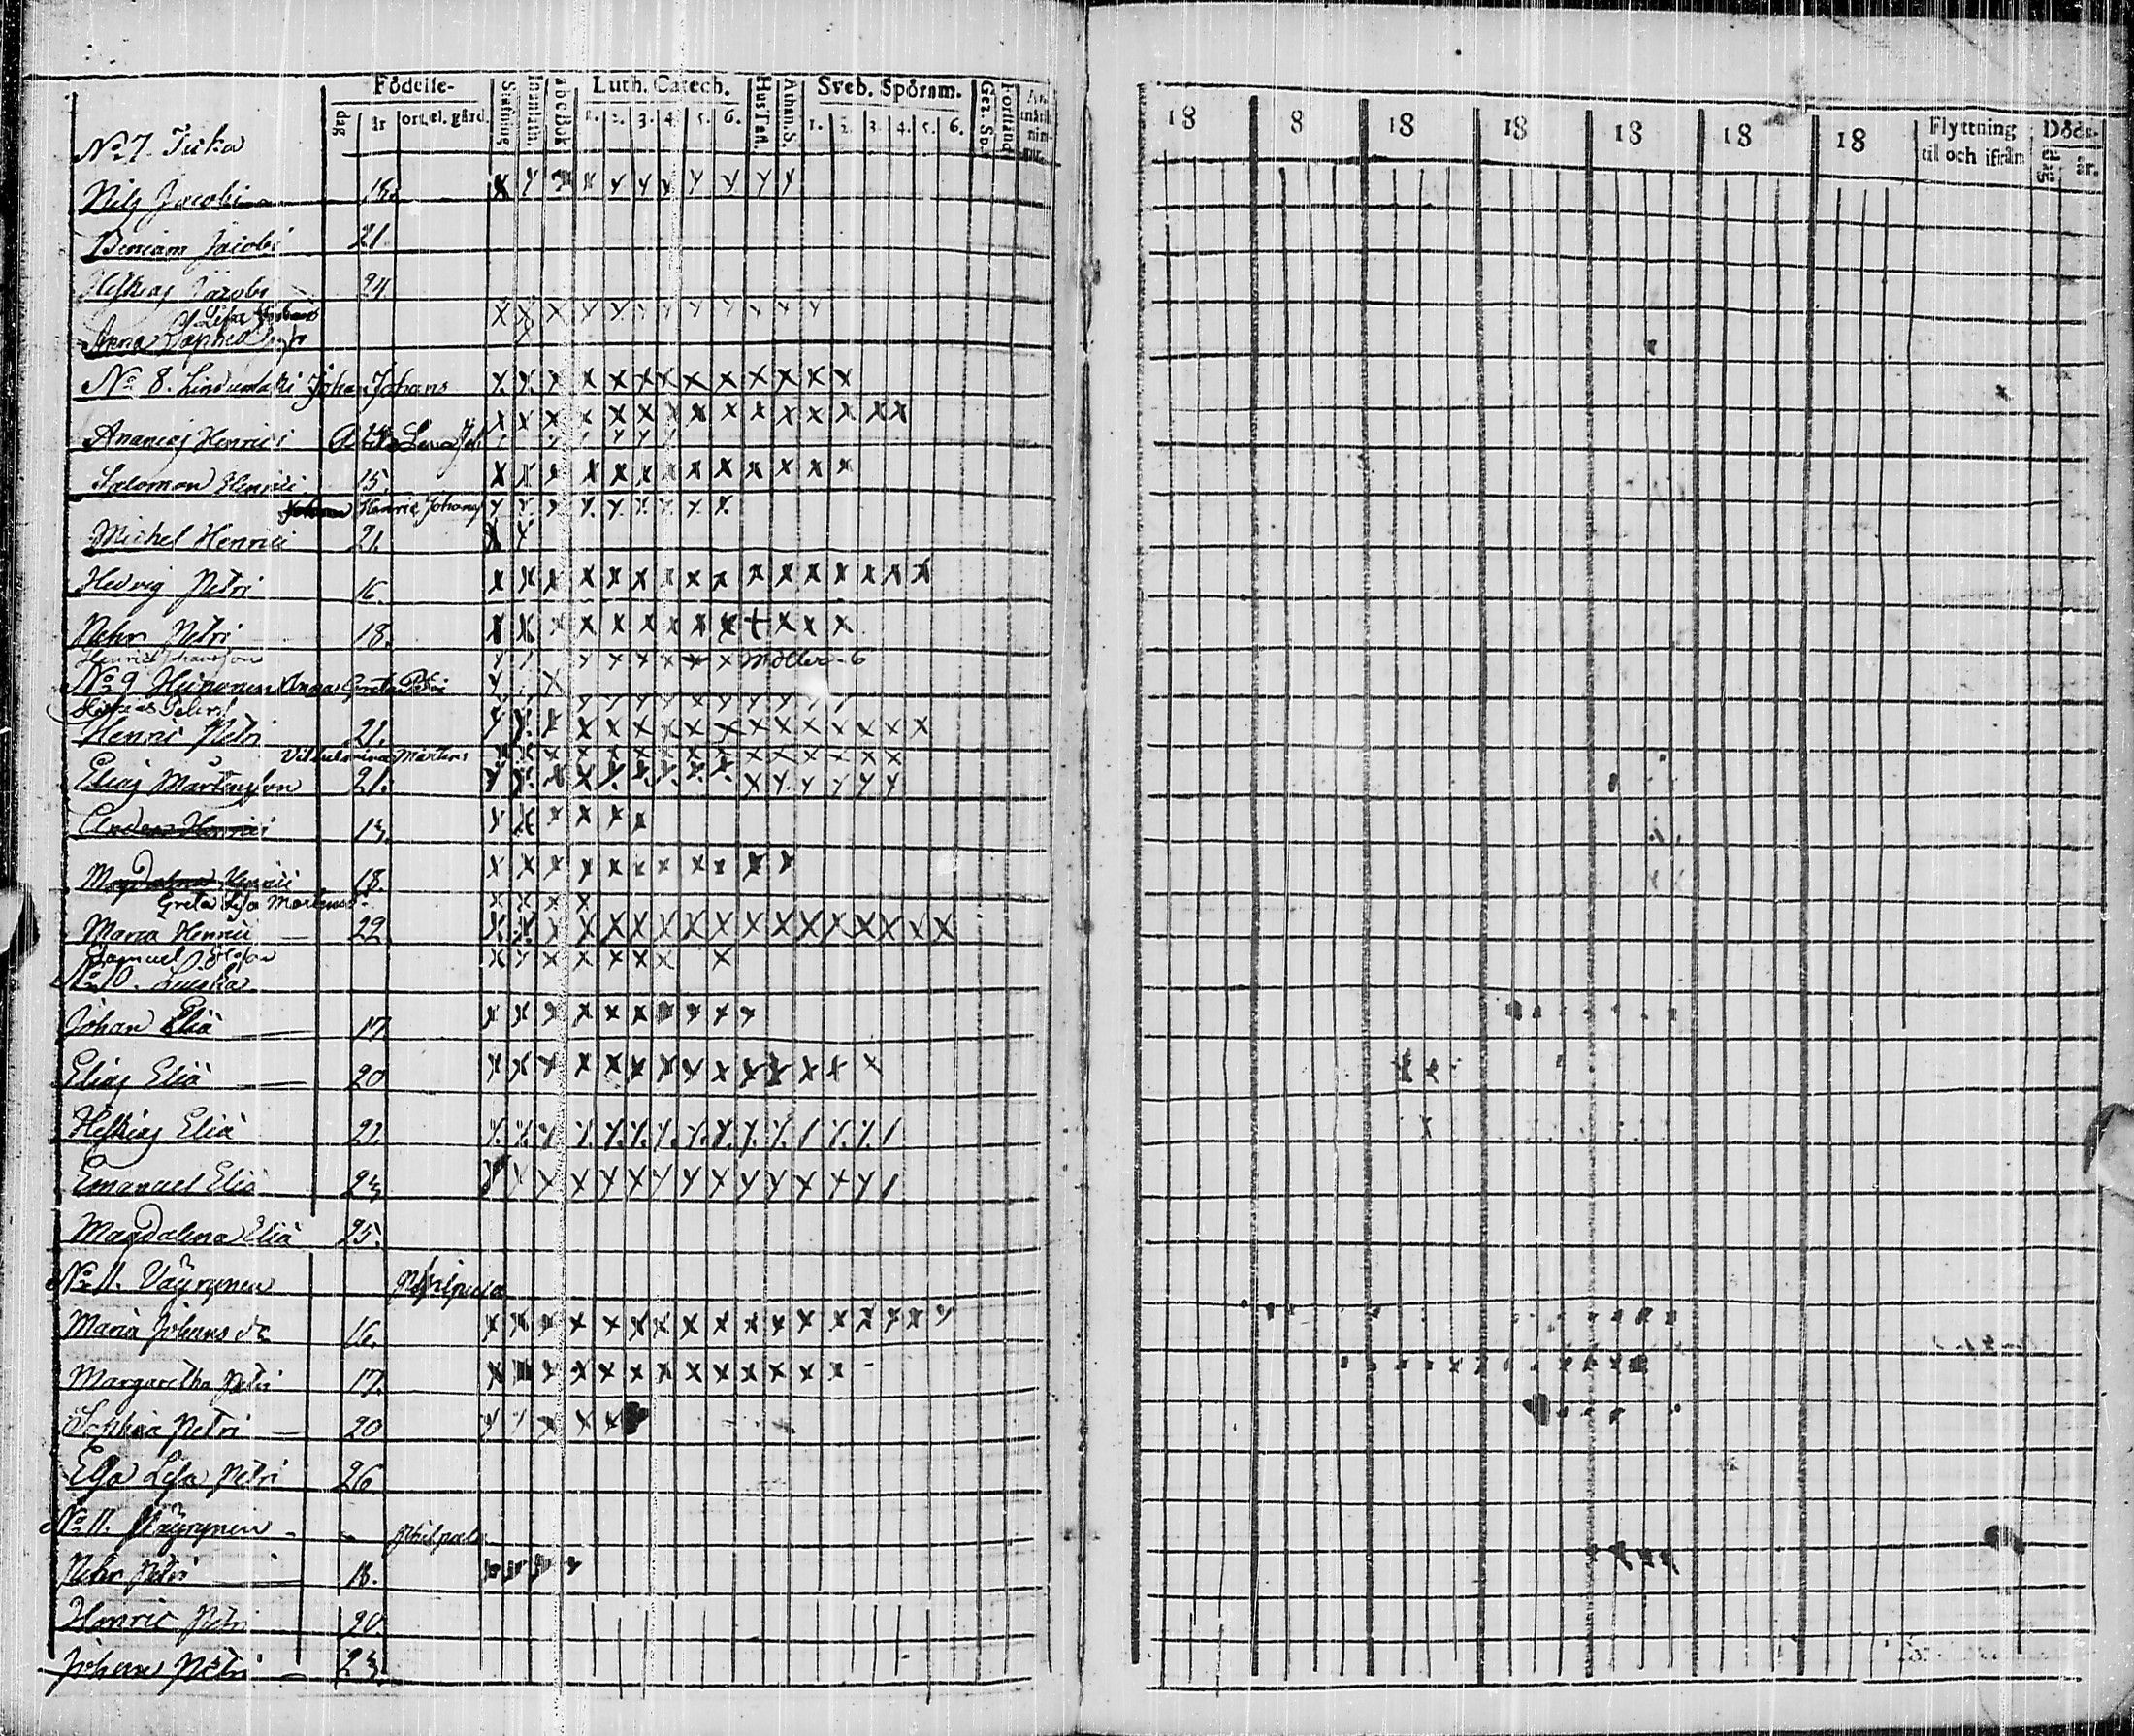 Födelse-
dag
år
ort, el. gård.
Stafning
Innanläsn.
abc Bok
Luth. Catech.
1. 2. 3. 4. 5. 6.
Hus Tafl.
Athan. S.
Sveb. Spörsm.
1. 2. 3. 4. 5. 6.
Gez. Sp.
Förstånd
18 8 18 18 18 18 18
Flyttning
til och ifrån
Döds-
dag
år.
No 7. Juka
Nilz Jacobi 18.
Beniam Jacobi 21
Heskiaj Jacobi 24
Lisa
Anna
No 8. Johan Johans
Ananiaj Henrici
Salomon Henrici 15.
Henric Johans
Michel Henrici 21.
Hedvig Petri 16.
Pehr Petri 18.
Henrick Johansson Möller - 6
No 9 Heinonen Anna Greta Petri
Henric Petri 21.
Vilhelmina Mårtens
Eliaj Mårtensson 21.
Anders Henrici 13.
Magdalena Henrici 18.
Greta Lisa Mårtens
Maria Henrici 22
Samuel
No 10. Lueska
Johan Eliæ 17.
Eliaj Eliæ 20
Heskiaj Eliæ 22
Emanuel Eliæ 23
Magdalena Eliæ 25.
No 11. Väyrynen
Maria Johans dr 16.
Margaretha Petri 17.
Sophia Petri 20
Elsa Lisa Petri 26
No 11. Väyrynen
Pehr Petri 18.
Henric Petri 20.
Johan Petri 23.